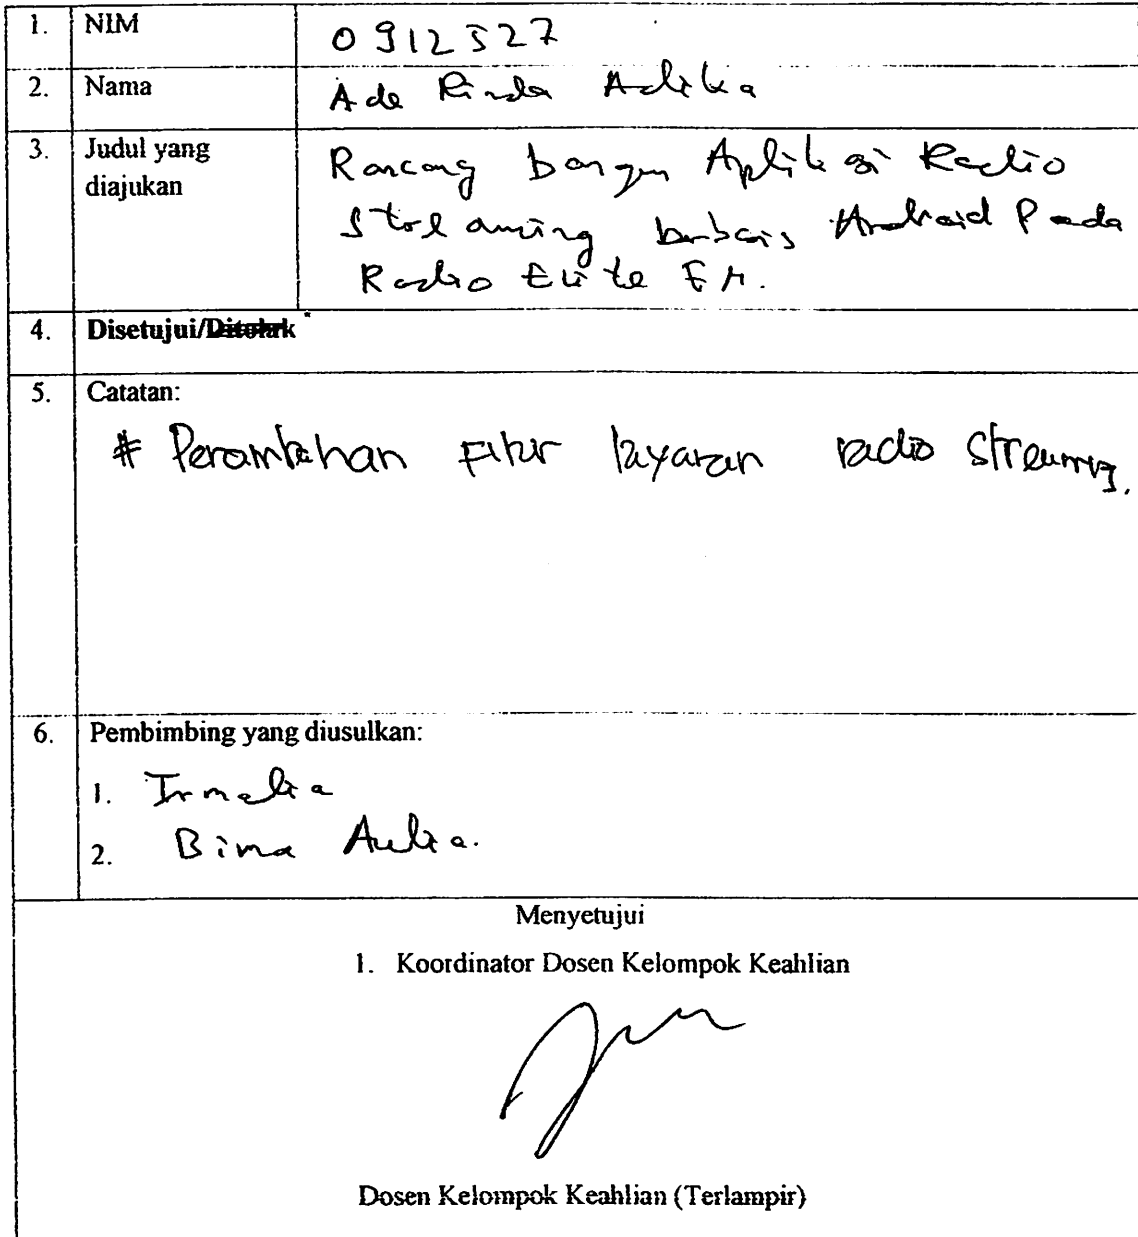 1. NIM 0912527
2. Nama Ade Rinda Adika
3. Judul yang diajukan Rancang bangun Aplikasi Radio
Streaming berbasis Android Pada
Radio Elite FM.
4. Disetujui/Ditolak *
5. Catatan:
# Penambahan Fitur layanan radio streaming.
6. Pembimbing yang diusulkan:
1. Irmalia
2. Bima Aulia.
Menyetujui
1. Koordinator Dosen Kelompok Keahlian
Dosen Kelompok Keahlian (Terlampir)